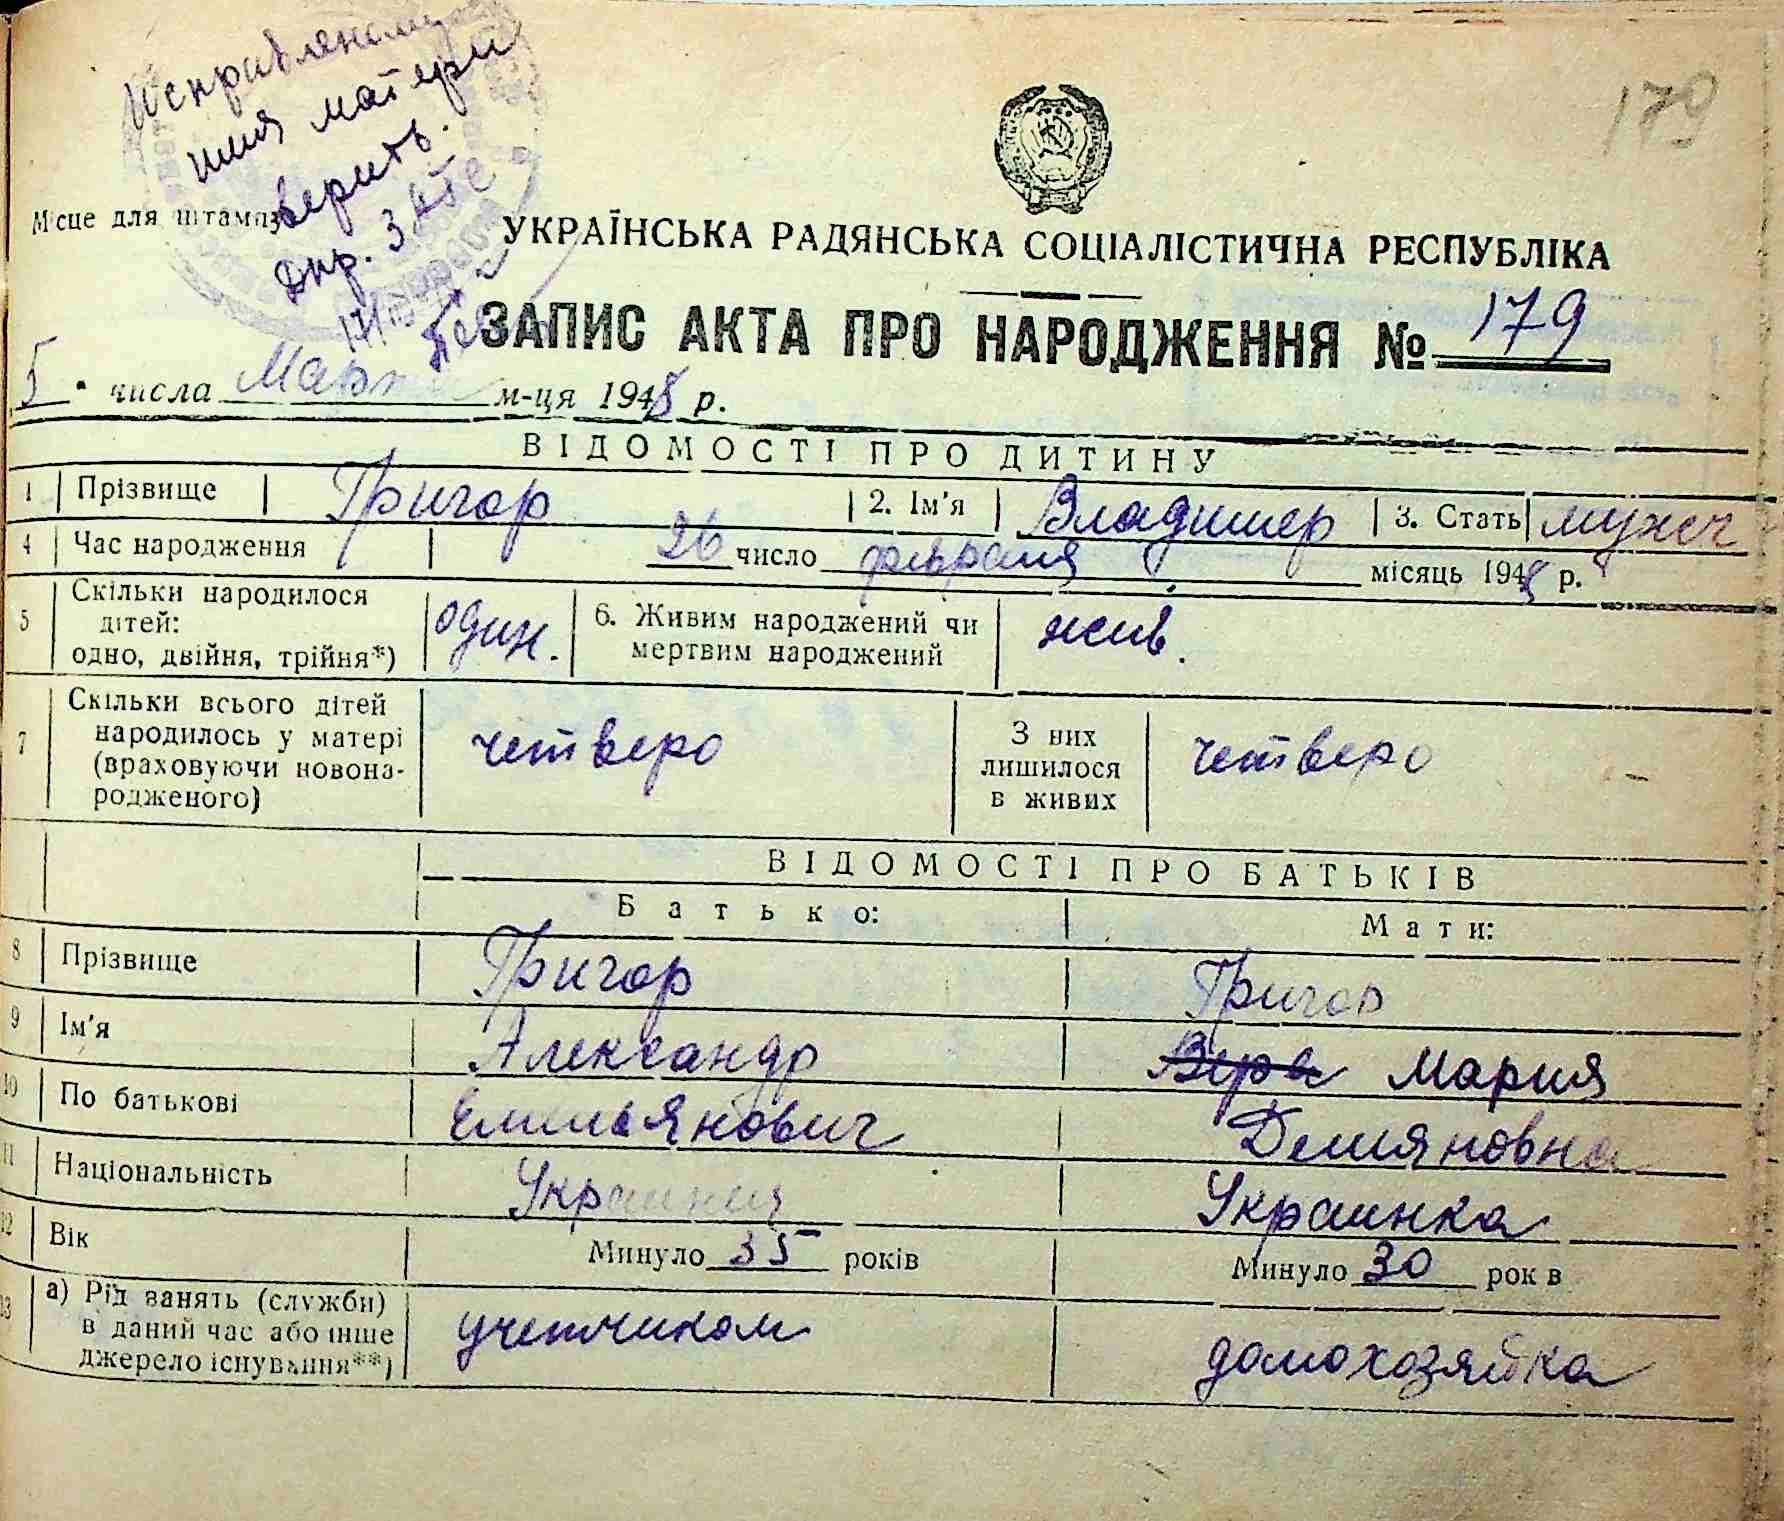 179
Исправленому
имя матери
верить.
Місце для штампу
УКРАЇНСЬКА РАДЯНСЬКА СОЦІАЛІСТИЧНА РЕСПУБЛІКА
ЗАПИС АКТА ПРО НАРОДЖЕННЯ № 179
5 числа Марта м-ця 1948 р.
ВІДОМОСТІ ПРО ДИТИНУ
1 Прізвище Григор 2. Ім'я Владимер 3. Стать мужск
4 Час народження 26 число февраля місяць 1948 р.
5 Скільки народилося дітей: одно, двійня, трійня*) один. 6. Живим народжений чи мертвим народжений жив.
7 Скільки всього дітей народилось у матері (враховуючи новона-родженого) четверо З них лишилося в живих четверо
ВІДОМОСТІ ПРО БАТЬКІВ
Батько: Мати:
8 Прізвище Григор Григор
9 Ім'я Александр Вера Мария
10 По батькові Емельянович Демяновна
11 Національність Украинец Украинка
12 Вік Минуло 35 років Минуло 30 рок в
13 а) Рід занять (служби) в даний час або інше джерело існування**) учетчиком домохозяйка